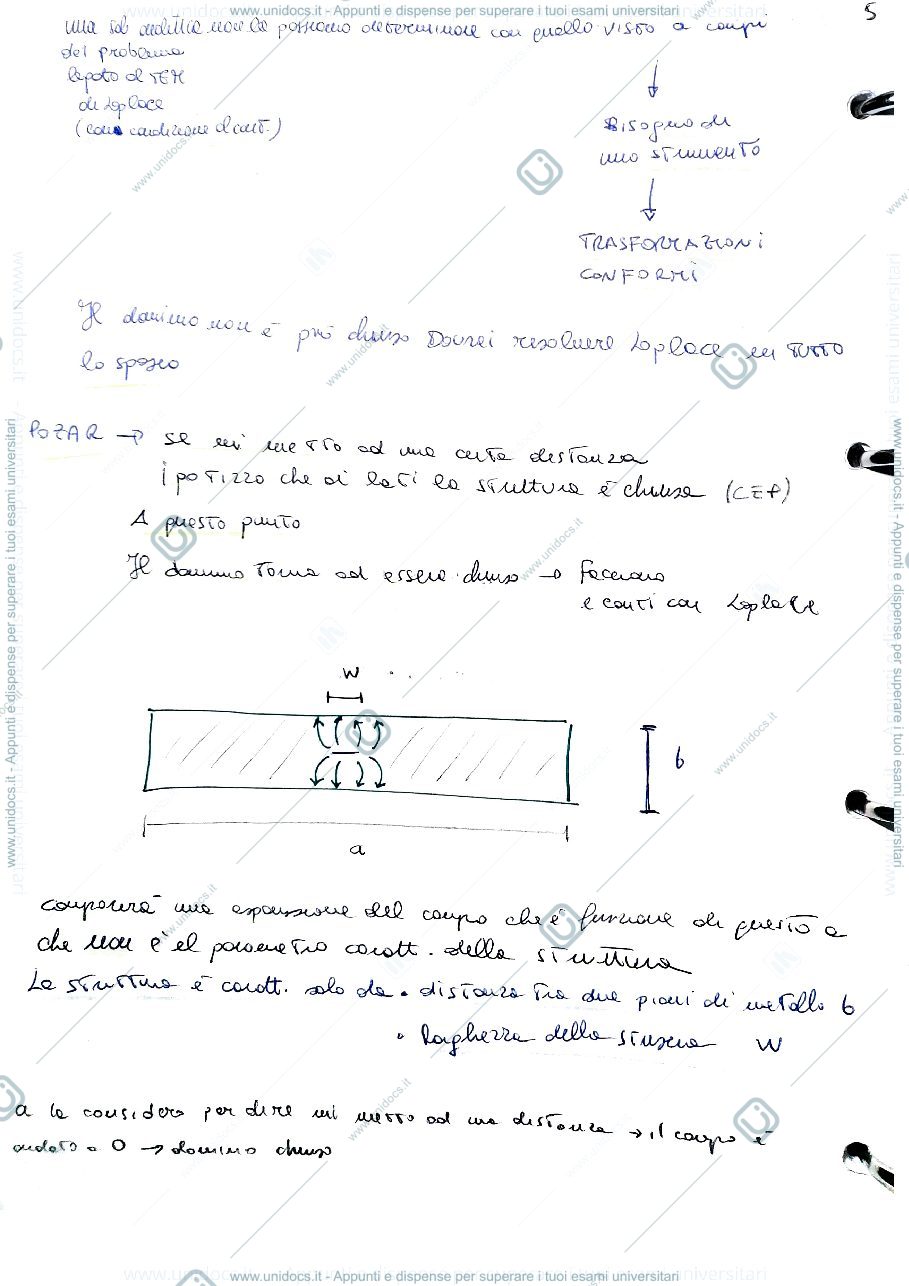 www.unidocs.it - Appunti e dispense per superare i tuoi esami universitari
5
una sol analitica non la possiamo determinare con quello visto a campi
del problema
legato al TEM
di Laplace
(come condizione al cont.)
Bisogno di
uno strumento
TRASFORMAZIONI
CONFORMI
Il dominio non è più chiuso Dovrei risolvere Laplace in TUTTO
lo spazio
POZAR → se mi metto ad una certa distanza
ipotizzo che ai lati la struttura è chiusa (CEP)
A questo punto
Il dominio torna ad essere chiuso → facciamo
i conti con Laplace
W
b
a
comparirà una espansione del campo che è funzione di questo a
che non è il parametro caratt. della struttura
La struttura è caratt. solo da • distanza tra due piani di metallo b
• larghezza della striscia W
a la considero per dire mi metto ad una distanza → il campo è
andato a 0 → dominio chiuso
www.unidocs.it - Appunti e dispense per superare i tuoi esami universitari